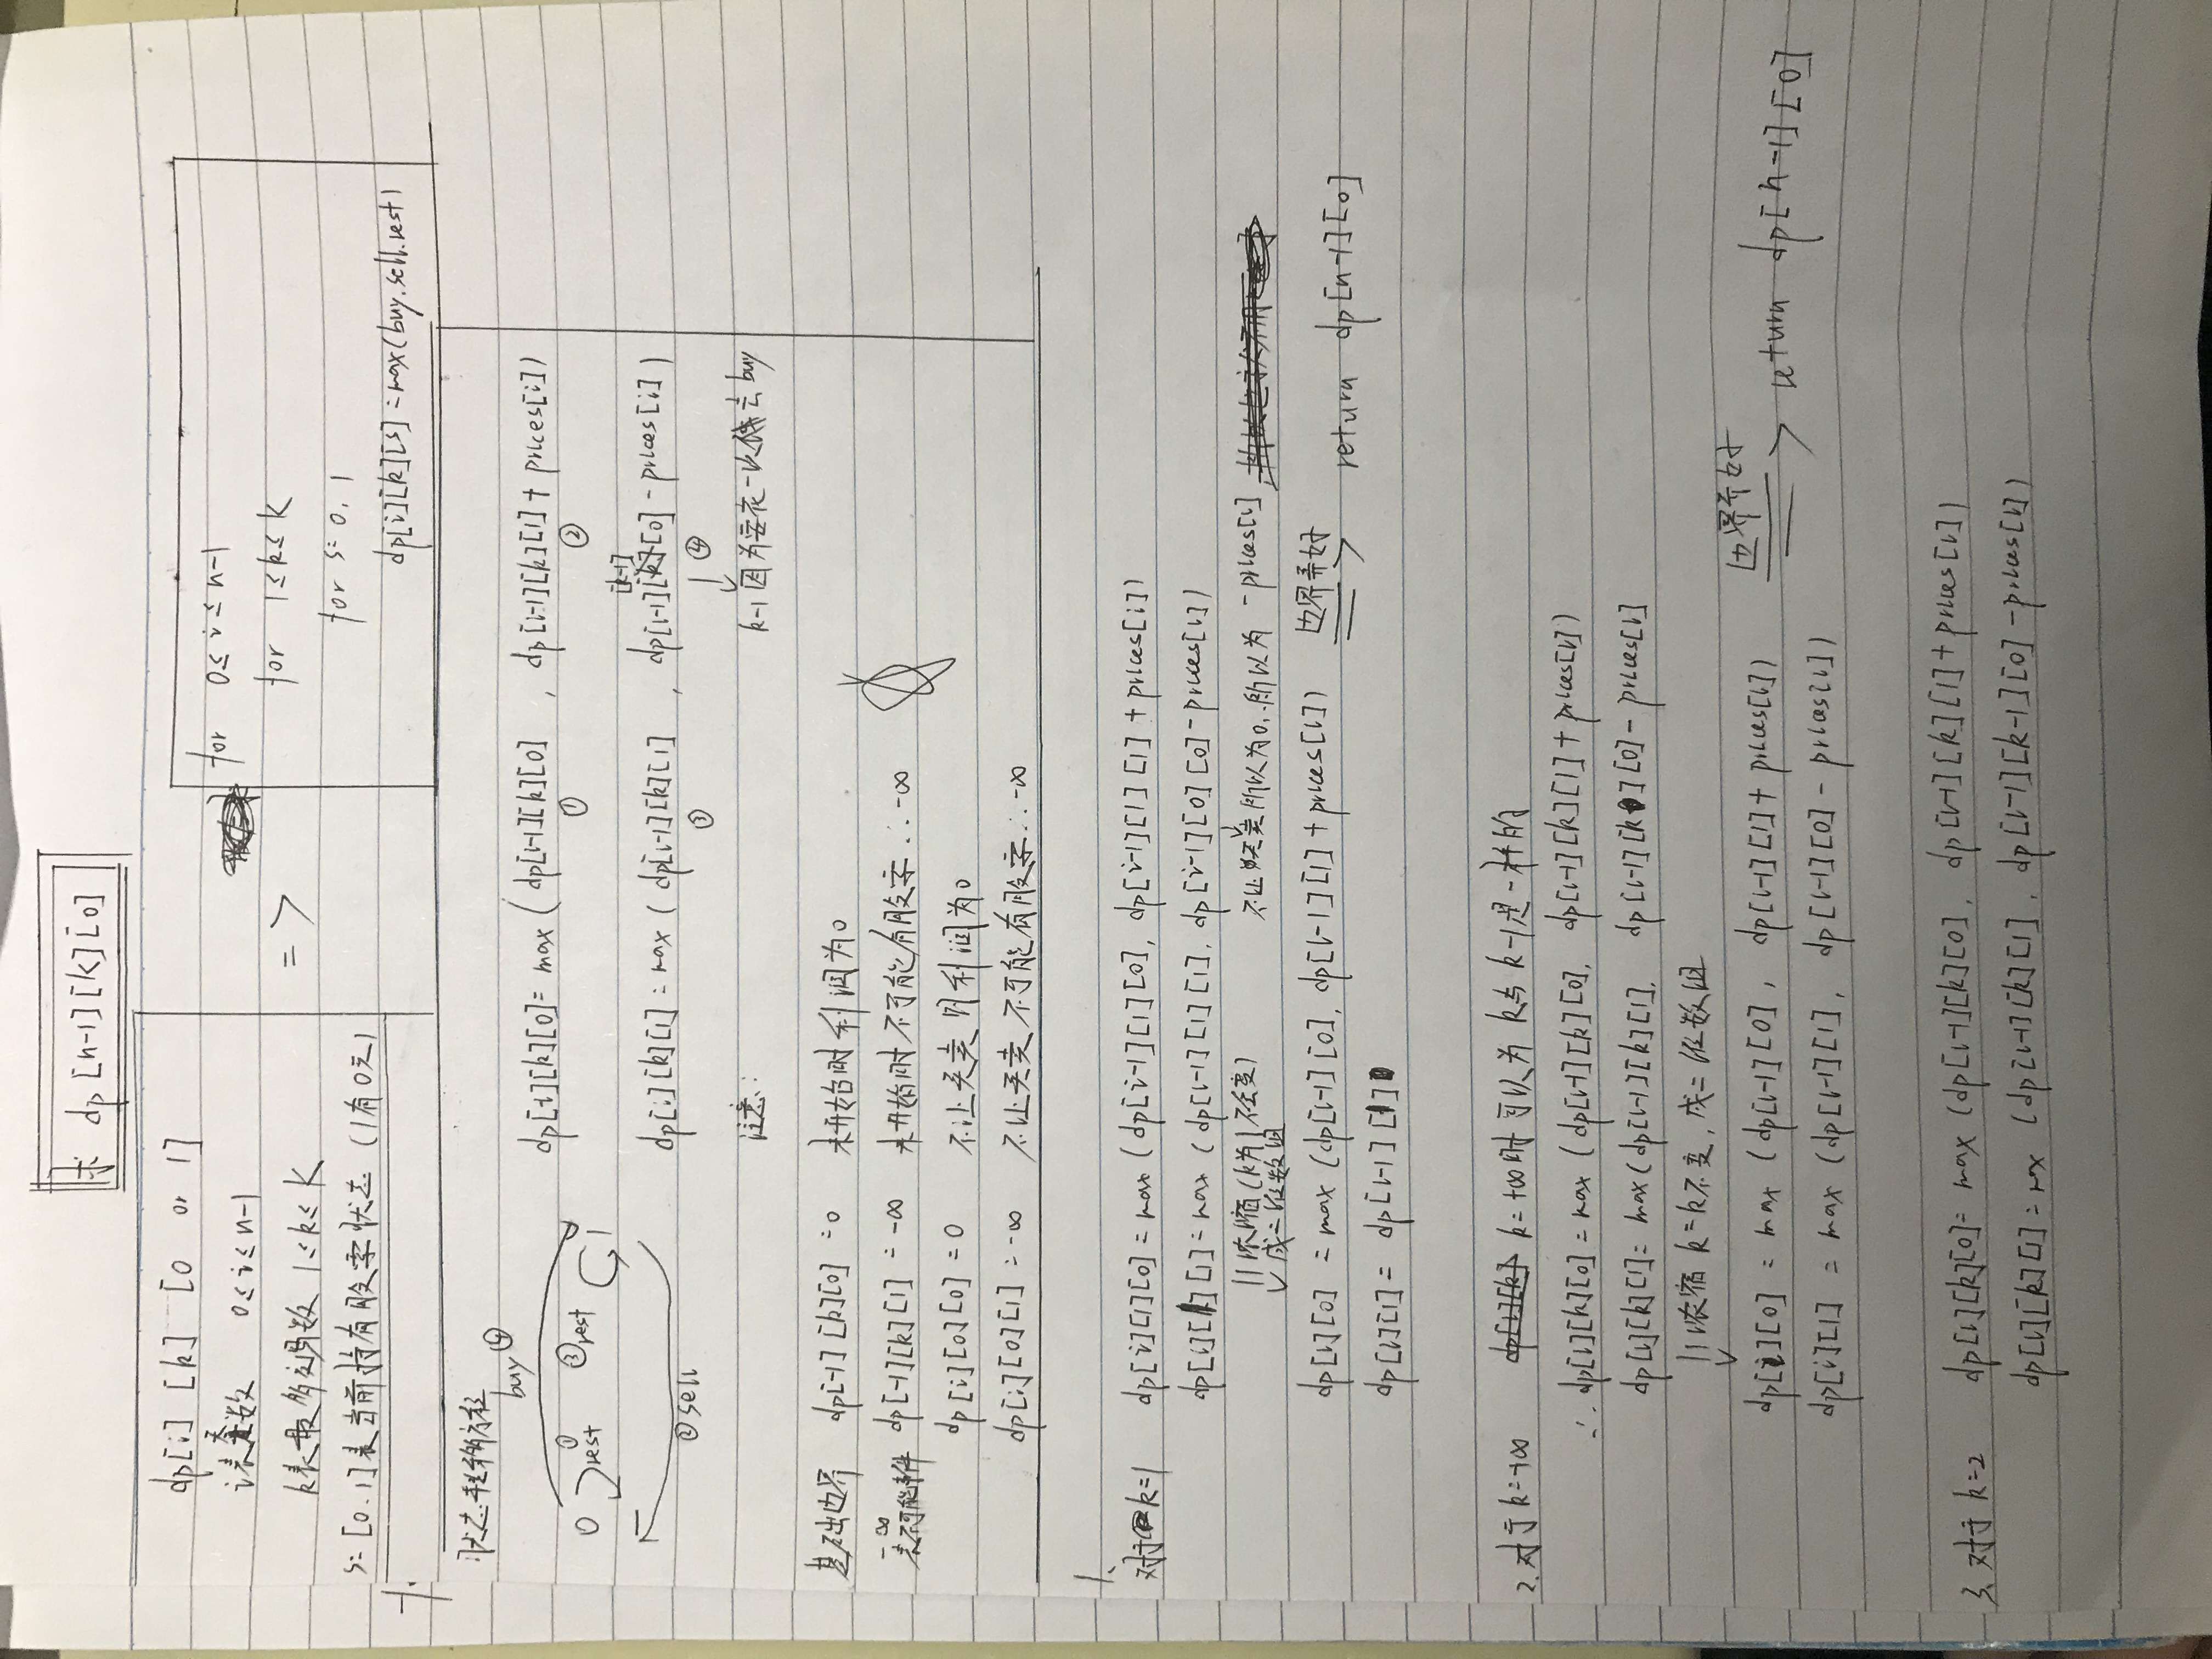 求 dp[n-1][k][0]
dp[i] [k] [0 or 1]
i表天数 0≤i≤n-1
k表最多交易数 1≤k≤K
s=[0.1]表当前持有股票状态 (1有0无)
=>
for 0≤i≤n-1
for 1≤k≤K
for s=0,1
dp[i][k][s]=max(buy.sell.rest)
状态转移方程
buy④
0 ①rest ③rest 1
②sell
dp[i][k][0]= max (dp[i-1][k][0] , dp[i-1][k][1]+ prices[i])
① ②
[k-1]
dp[i][k][1]=max ( dp[i-1][k][1] , dp[i-1][0]-prices[i])
③ ④
注意: k-1因为要花一次机会去buy
基础边界 dp[-1][k][0]=0 未开始时利润为0
-∞表不可能事件 dp[-1][k][1]=-∞ 未开始时不可能有股票∴-∞
dp[i][0][0]=0 不让买卖 则利润为0
dp[i][0][1]=-∞ 不让买卖 不可能有股票∴-∞
1、
对于k=1 dp[i][1][0]=max (dp[i-1][1][0], dp[i-1][1][1]+prices[i])
dp[i][1][1]=max (dp[i-1][1][1], dp[i-1][0][0]-prices[i])
浓缩(k为1不会变) 不让买卖所以为0,∴所以为 -prices[i]
成二维数组
dp[i][0] = max (dp[i-1][0], dp[i-1][1]+prices[i]) 边界弄好 => return dp[n-1][0]
dp[i][1]= dp[i-1][1]
2.对于k=+∞ k=+∞时可以为 k与k-1是一样的
∴ dp[i][k][0]=max (dp[i-1][k][0], dp[i-1][k][1]+prices[i])
dp[i][k][1]=max(dp[i-1][k][1], dp[i-1][k][0]-prices[i]
浓缩 k=k不变,成二维数组
dp[i][0] = max (dp[i-1][0], dp[i-1][1]+prices[i]) 边界弄好 => return dp[n-1][0]
dp[i][1] = max (dp[i-1][1], dp[i-1][0]-prices[i])
3、对于k=2 dp[i][k][0]=max (dp[i-1][k][0], dp[i-1][k][1]+prices[i])
dp[i][k][1]=max (dp[i-1][k][1], dp[i-1][k-1][0]-prices[i])